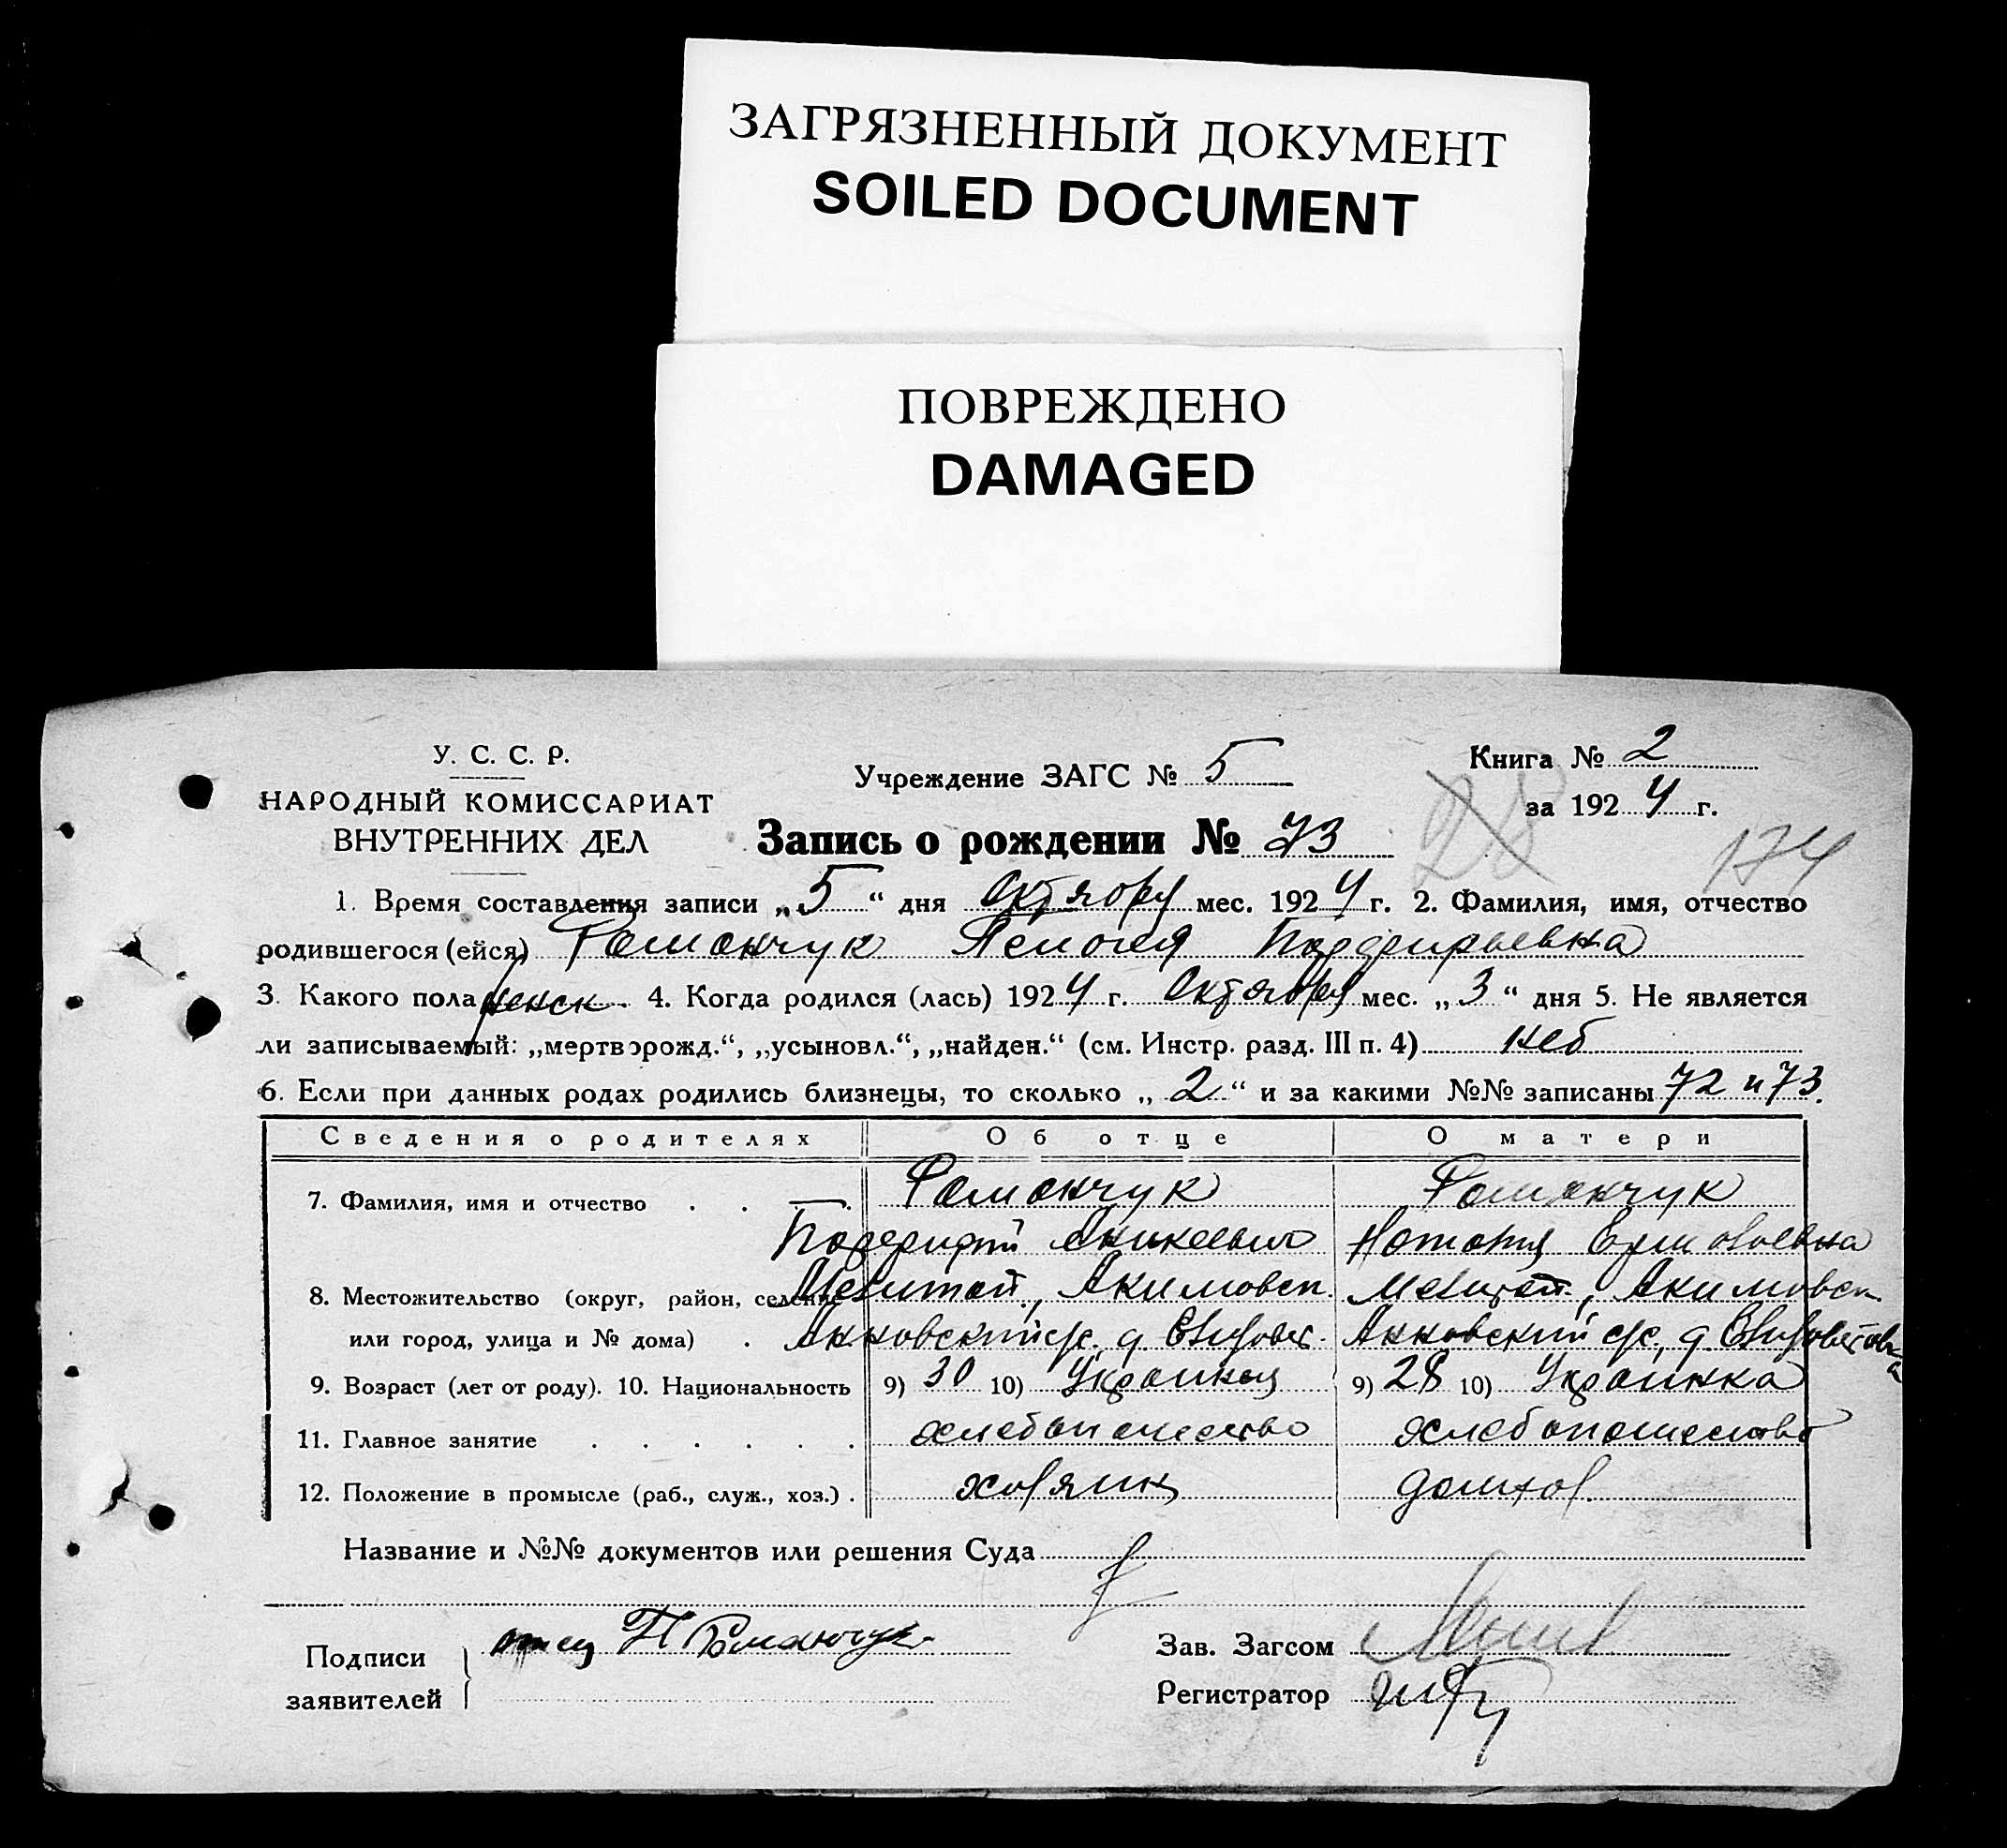 ЗАГРЯЗНЕННЫЙ ДОКУМЕНТ
SOILED DOCUMENT
ПОВРЕЖДЕНО
DAMAGED
У. С. С. Р.
НАРОДНЫЙ КОМИССАРИАТ
ВНУТРЕННИХ ДЕЛ
Учреждение ЗАГС № 5
Книга № 2
за 1924 г.
28
174
Запись о рождении № 73
1. Время составления записи „5“ дня Октября мес. 1924 г. 2. Фамилия, имя, отчество
родившегося (ейся) Романчук Пелогея
3. Какого пола женск. 4. Когда родился (лась) 1924 г. Октября мес. „3“ дня 5. Не является
ли записываемый: „мертворожд.“, „усыновл.“, „найден.“ (см. Инстр. разд. III п. 4)
6. Если при данных родах родились близнецы, то сколько „2“ и за какими №№ записаны 72 и 73.
Сведения о родителях Об отце О матери
7. Фамилия, имя и отчество Романчук Романчук
8. Местожительство (округ, район, селение Мелитоп., Акимовск. Мелитоп., Акимовск.
или город, улица и № дома) Анновский с/с. д. Анновский с/с, д.
9. Возраст (лет от роду). 10. Национальность 9) 30 10) Украинец 9) 28 10) Украинка
11. Главное занятие хлебопашество хлебопашество
12. Положение в промысле (раб., служ., хоз.). хозяин домхоз.
Название и №№ документов или решения Суда
Подписи заявителей отец П Романчук
Зав. Загсом
Регистратор